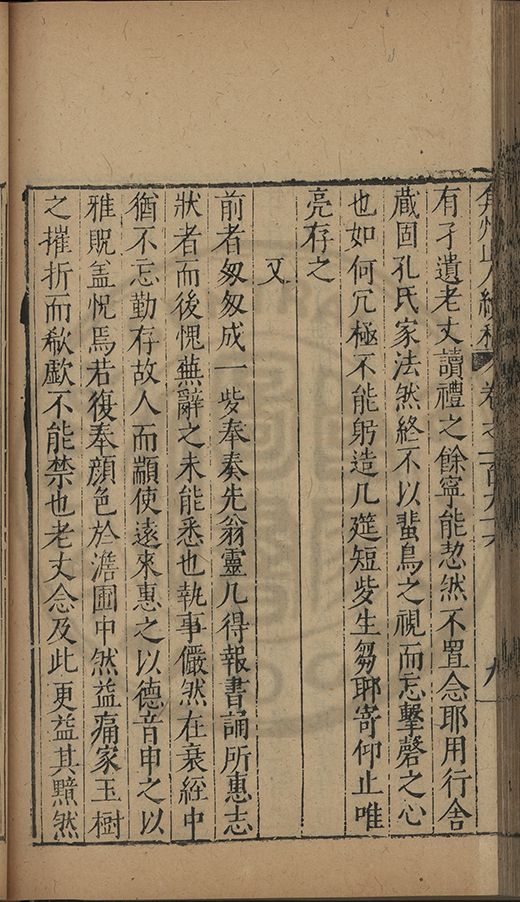 弇州山人續稿 卷之一百九十六 九
有孑遺老丈讀禮之餘寧能恝然不置念耶用行舍
蔵固孔氏家法然終不以蜚鳥之視而忘擊磬之心
也如何冗極不能躬造几筵短疏生芻聊寄仰止唯
亮存之
又
前者匆匆成一疏奉奏先翁靈几得報書誦所惠志
狀者而後愧蕪辭之未能悉也執事儼然在衰絰中
猶不忘勤存故人而顓使遠來惠之以德音申之以
雅貺盖怳焉若復奉顔色於澹圃中然益痛家玉樹
之摧折而欷歔不能禁也老丈念及此更益其黯然